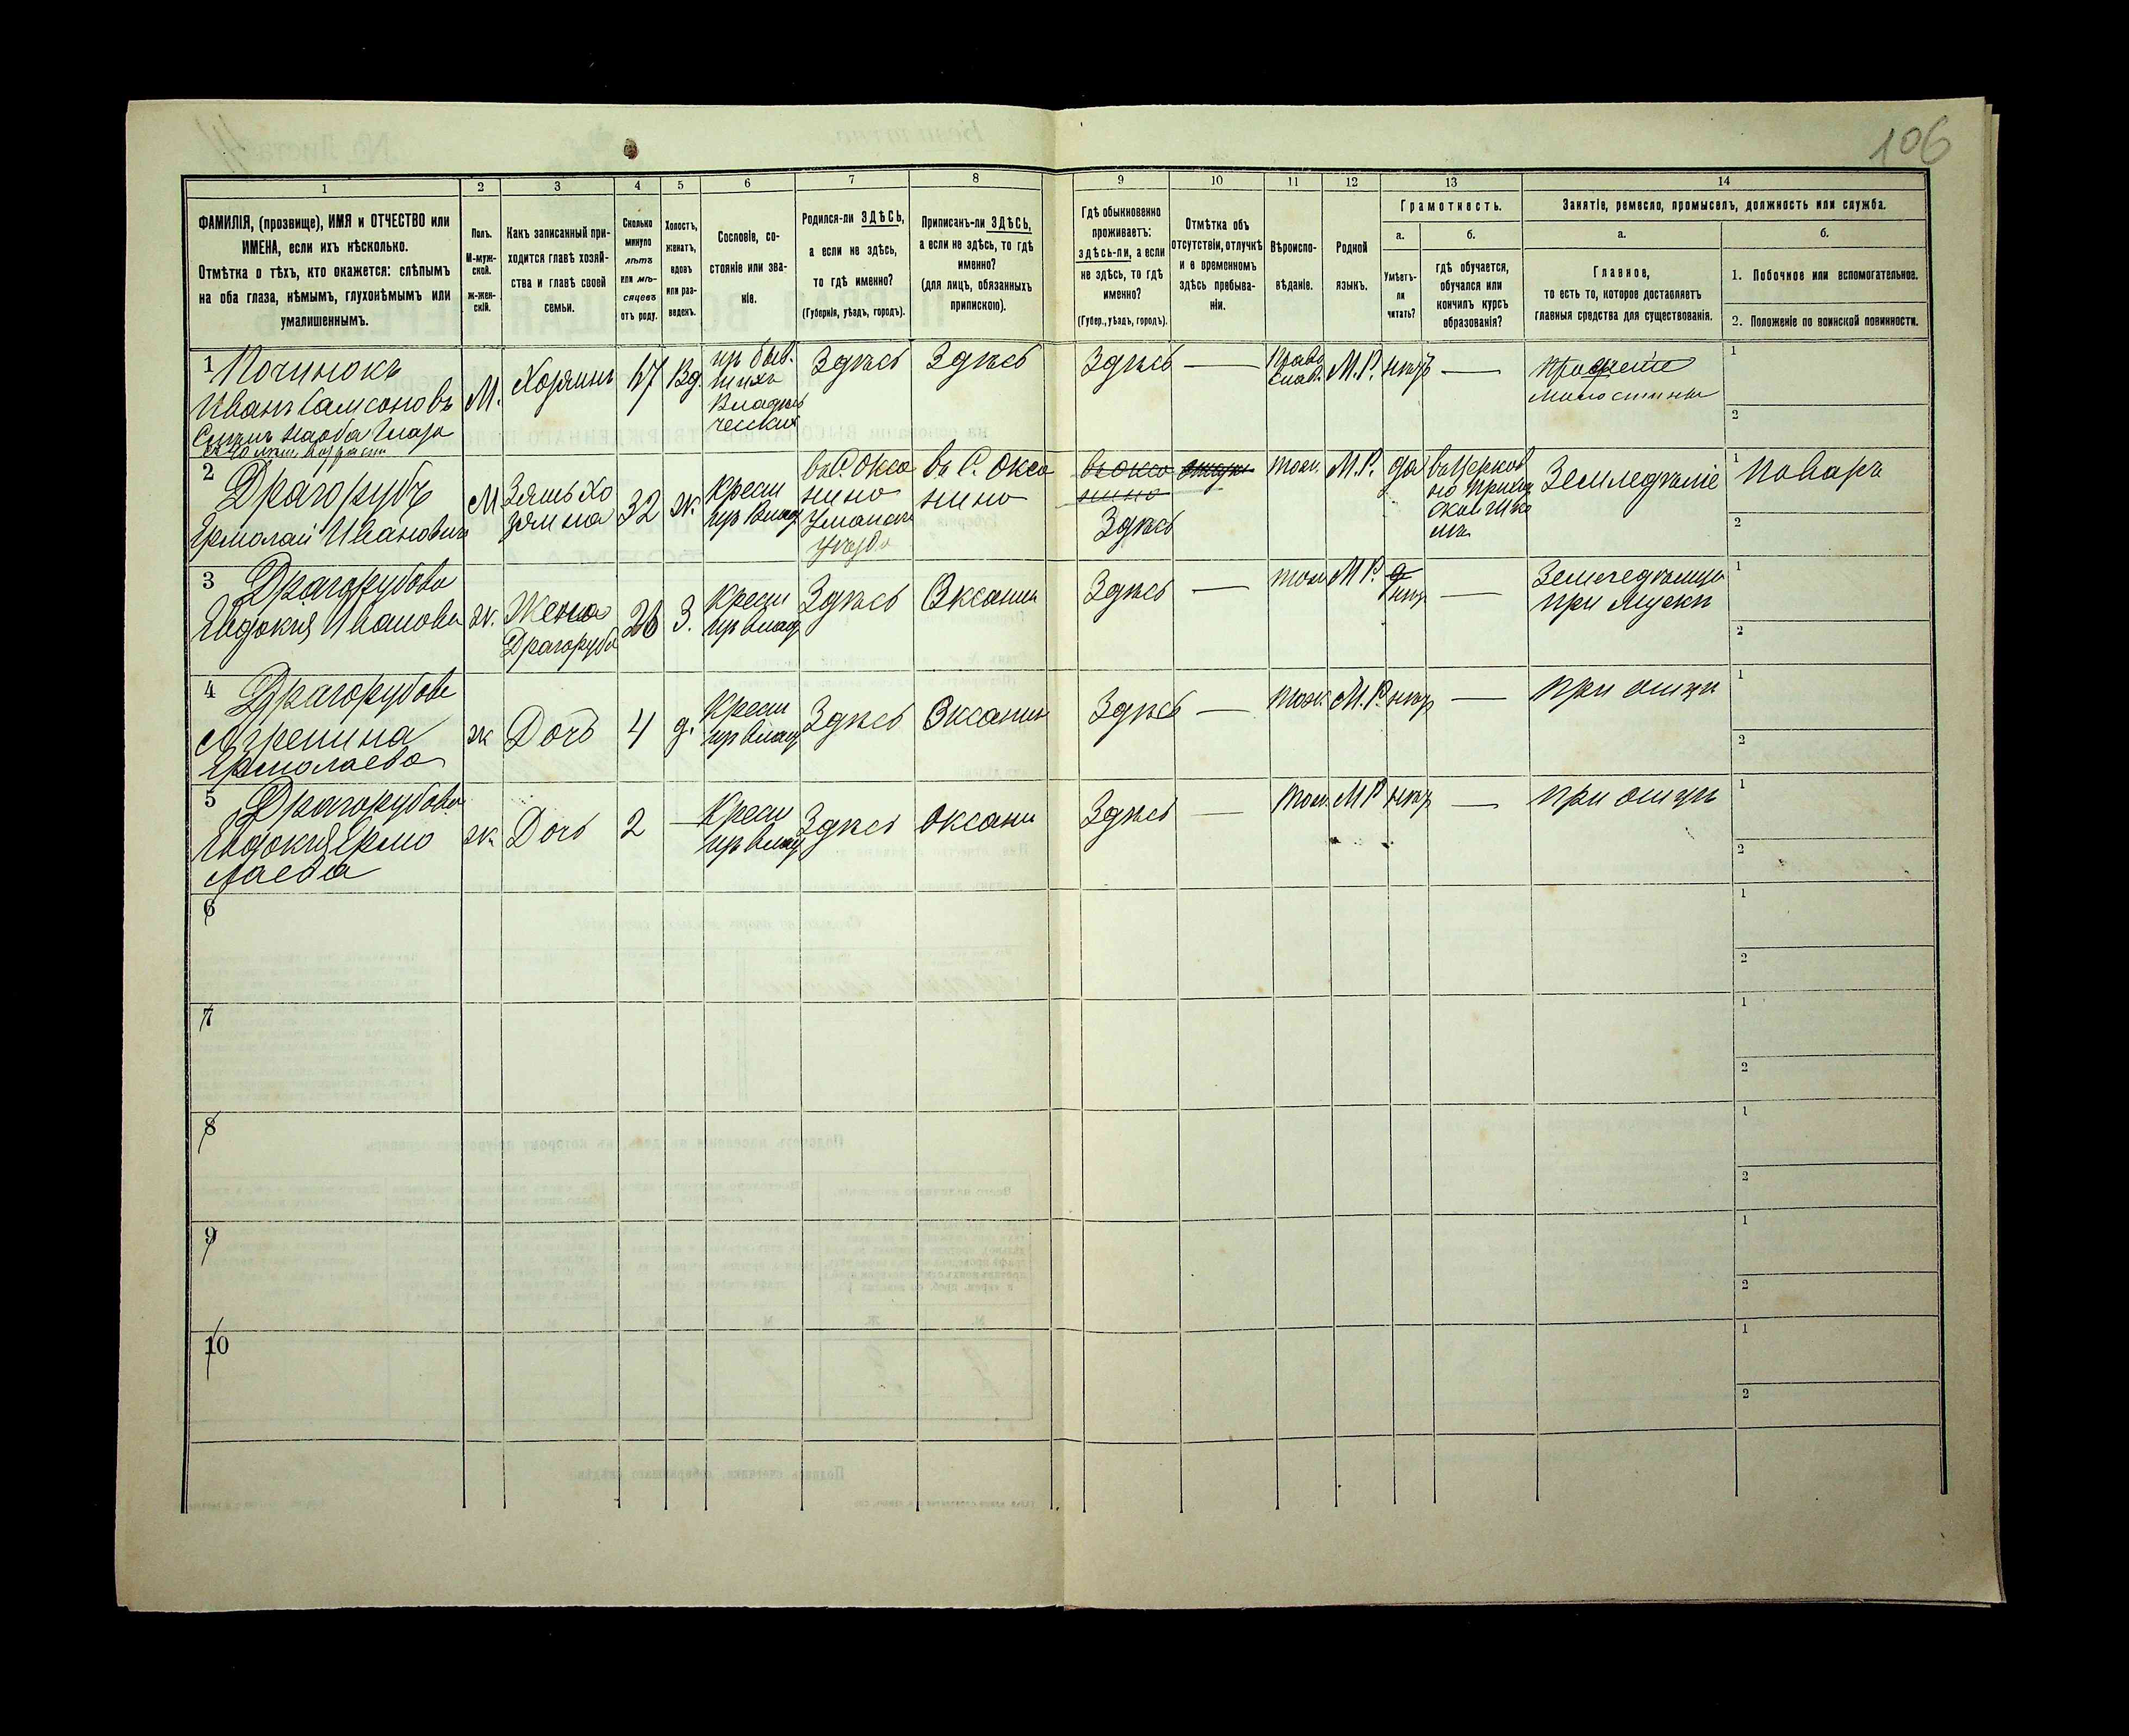 106
1 2 3 4 5 6 7 8 9 10 11 12 13 14
ФАМИЛІЯ, (прозвище), ИМЯ и ОТЧЕСТВО или
ИМЕНА, если ихъ нѣсколько.
Отмѣтка о тѣхъ, кто окажется: слѣпымъ
на оба глаза, нѣмымъ, глухонѣмымъ или
умалишеннымъ.
Полъ.
М-муж-
ской.
ж-жен-
скій.
Какъ записанный при-
ходится главѣ хозяй-
ства и главѣ своей
семьи.
Сколько
минуло
лѣтъ
или мѣ-
сяцевъ
отъ роду.
Холостъ,
женатъ,
вдовъ
или раз-
веденъ.
Сословіе, со-
стояніе или зва-
ніе.
Родился-ли ЗДѢСЬ,
а если не здѣсь,
то гдѣ именно?
(Губернія, уѣздъ, городъ).
Приписанъ-ли ЗДѢСЬ,
а если не здѣсь, то гдѣ
именно?
(для лицъ, обязанныхъ
припискою).
Гдѣ обыкновенно
проживаетъ:
здѣсь-ли, а если
не здѣсь, то гдѣ
именно?
(Губер., уѣздъ, городъ).
Отмѣтка объ
отсутствіи, отлучкѣ
и о временномъ
здѣсь пребыва-
ніи.
Вѣроиспо-
вѣданіе.
Родной
языкъ.
Грамотность.
а.
Умѣетъ-
ли
читать?
б.
гдѣ обучается,
обучался или
кончилъ курсъ
образованія?
Занятіе, ремесло, промыселъ, должность или служба.
а.
Главное,
то есть то, которое доставляетъ
главныя средства для существованія.
б.
1. Побочное или вспомогательное.
2. Положеніе по воинской повинности.
1 Починокъ
Иванъ Самсоновъ
М.
Хозяинъ
67
Вд.
Здѣсь
Здѣсь
Здѣсь
—
Право
слав.
М.Р.
нѣтъ
—
милостыны
1
2
2 Драгорубъ
Ермолай Ивановичъ
М
Зять хо
зяина
32
ж.
Крест
изъ Влад
въ С. Окса
нино
Уманск
уѣзда
въ С. Окса
нино
въ Окса
нино
Здѣсь
тож.
М.Р.
да
въ Церков
но приход
ской шко
лѣ
Земледѣліе
1 Поваръ
2
3 Драгорубова
Евдокия Иванова
ж.
Жена
Драгоруба
26
З.
Крест
изъ Влад
Здѣсь
Оксанин
Здѣсь
—
тож
М.Р.
нѣт
—
Земледѣлица
при мужѣ
1
2
4 Драгорубова
Агрепина
Ермолаева
ж
Дочь
4
д.
Крест
изъ Влад
Здѣсь
Оксанин
Здѣсь
—
тож.
М.Р.
нѣт
—
при отцѣ
1
2
5 Драгорубова
Евдокия Ермо
лаева
ж
Дочь
2
—
Крест
изъ Влад
Здѣсь
Оксани
Здѣсь
—
тож.
М.Р.
нѣт
—
при отцѣ
1
2
6
1
2
7
1
2
8
1
2
9
1
2
10
1
2